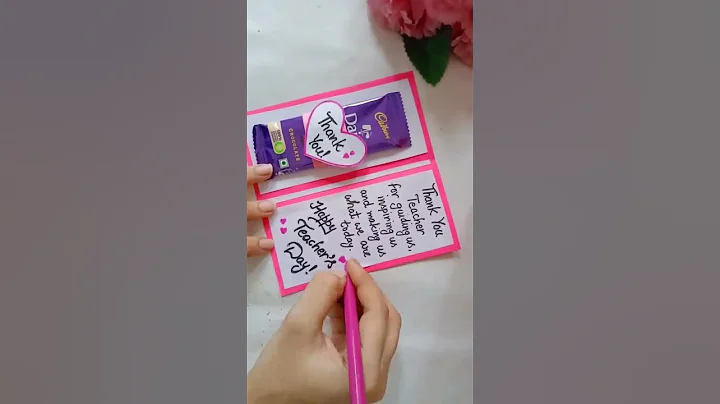 Cadbury
Da
CHOCOLATE
Thank
You!
Thank You
Teacher
for guiding us,
inspiring us
and making us
what we are
today.
Happy
Teacher's
Day!